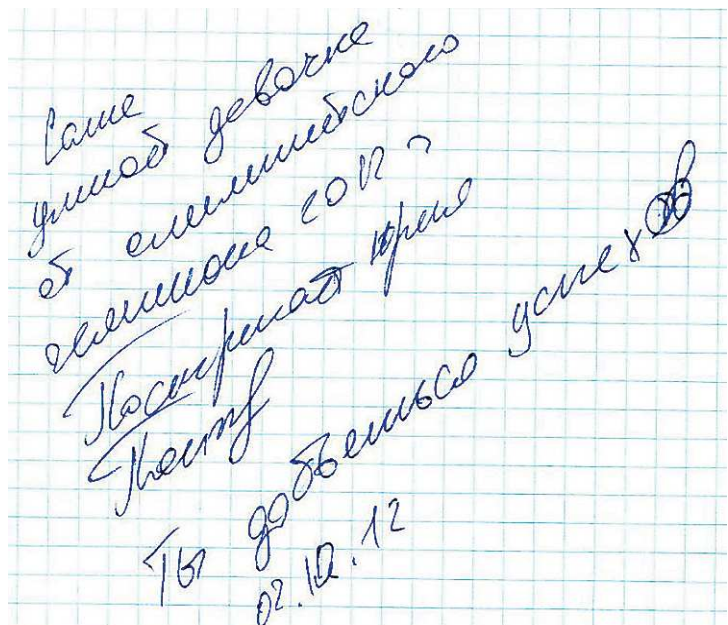 Саше
умной девочке
от олимпийского
чемпиона 2012 г
Постригай Юрия
Ты добьешься успехов
02.10.12